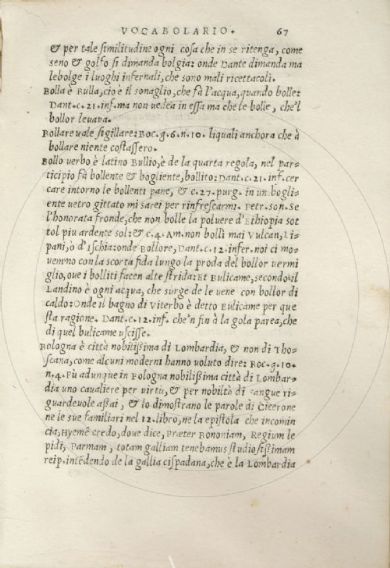 VOCABOLARIO. 67
& per tale similitudine ogni cosa che in se ritenga, come
seno & golfo si dimanda bolgia: onde Dante dimanda ma
lebolge i luoghi infernali, che sono mali ricettacoli.
Bolla è Bulla, cio è il sonaglio, che fa l'acqua, quando bolle:
Dant. c. 21. inf. ma non uedea in essa ma che le bolle, che'l
bollor leuava.
Bollare uale sigillare: Boc. g. 6. n. 10. liquali anchora che à
bollare niente costassero.
Bollo verbo è latino Bullio, è de la quarta regola, nel par-
ticipio fà bollente & bogliente, bollito: Dant. c. 21. inf. cer
care intorno le bollenti pane, & c. 27. purg. in un bogli-
ente uetro gittato mi sarei per rinfrescarmi. Petr. son. Se
l'honorata fronde, che non bolle la poluere d'Ethiopia sot
tol piu ardente sol: & c. 4. AM. non bollì mai Vulcan, Li-
pari, ò d'Ischia: onde Bollore, Dant. c. 12. infer. noi ci mo-
uemmo con la scorta fida lungo la proda del bollor vermi
glio, oue i bolliti facen alte strida: Et Bulicame, secondo il
Landino è ogni acqua, che surge de le uene con bollor di
caldo: Onde il bagno di Viterbo è detto Bulicame per que
sta ragione. Dant. c. 12. inf. che'n fin à la gola parea, che
di quel bulicame uscisse.
Bologna è città nobilissima di Lombardia, & non di Tho-
scana, come alcuni moderni hanno voluto dire: Boc. g. 10.
n. 4. Fù adunque in Bologna nobilissima città di Lombar-
dia uno cavaliere per virtù, & per nobiltà di sangue ri-
guardevole assai, & lo dimostrano le parole di Cicerone
ne le sue familiari nel 12. libro, ne la epistola che incomin
cia, Hyemē credo, doue dice, Præter Bononiam, Regium le
pidi, Parmam, totam galliam tenebamus studiosissimam
reip. intēdendo de la gallia cispadana, che è la Lombardia